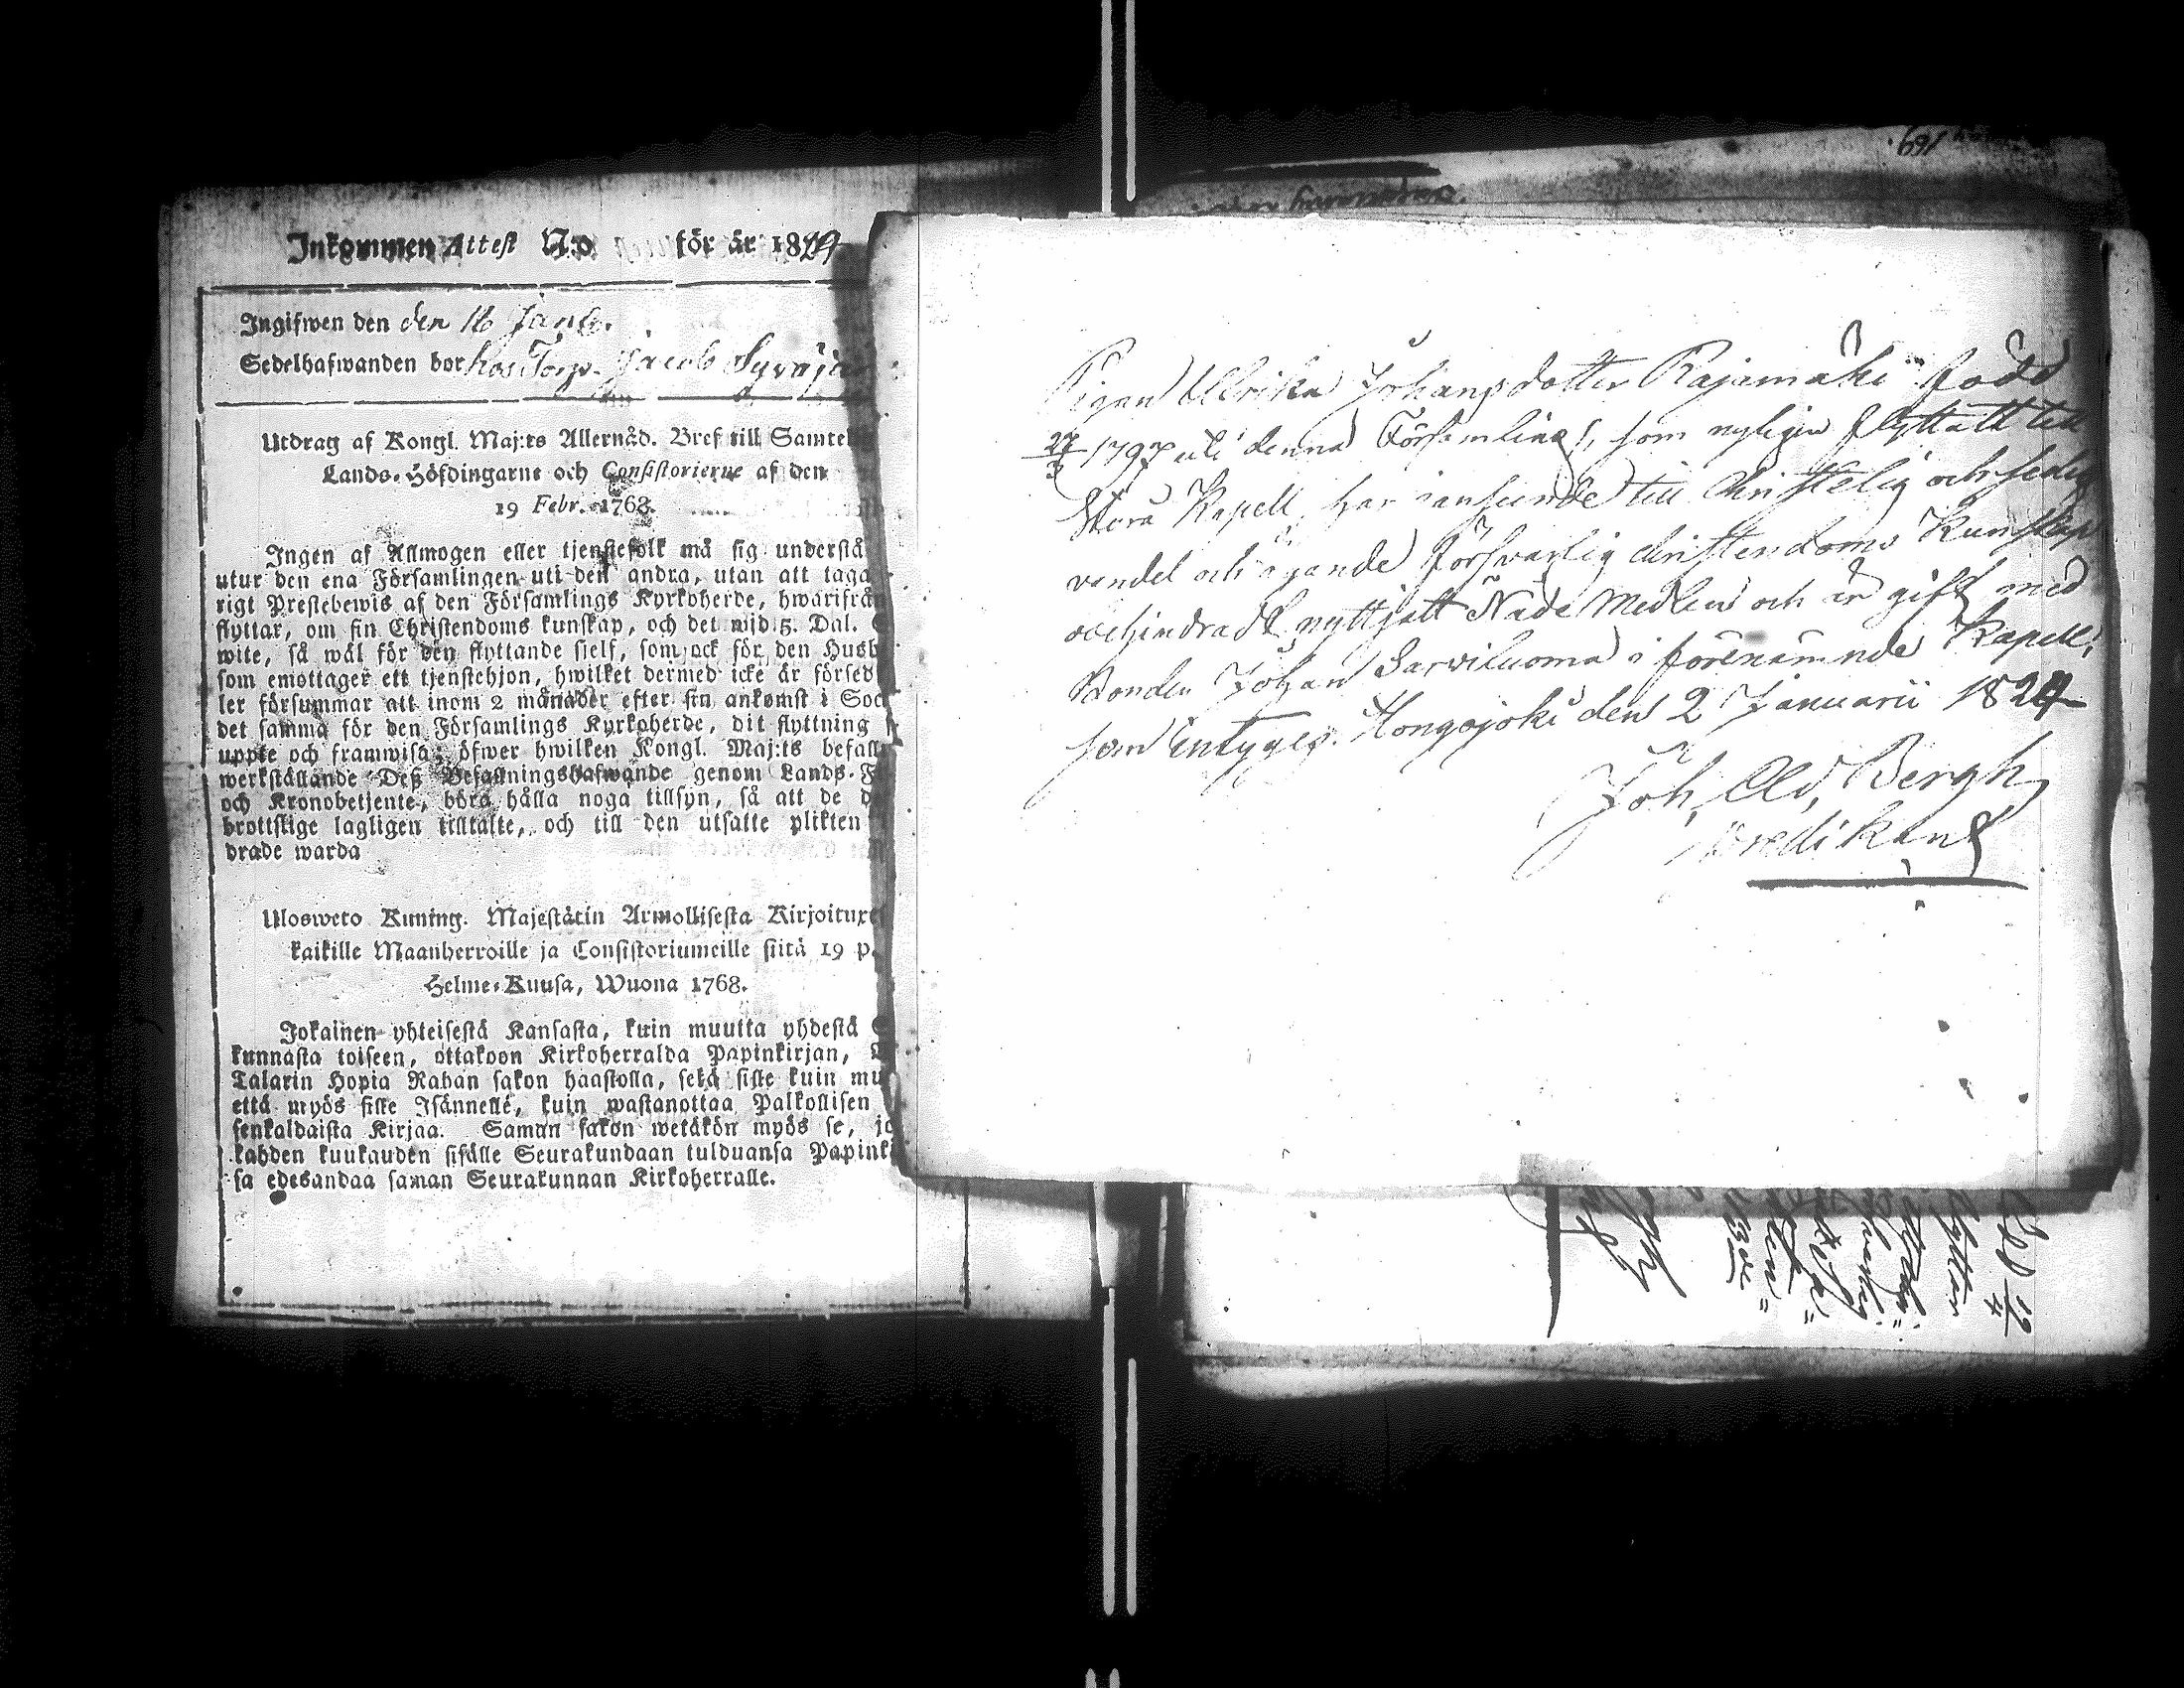 Inkommen Attest N:o för år 1824
Ingifwen den den 16 Janu.
Sedelhafwanden bor hos Torp. Jacob
Utdrag af Kongl. Maj:ts Allernåd. Bref till
Lands-Höfdingarne och Consistorierne af den
19 Febr. 1768.
Ingen af Allmogen eller tjenstefolk må sig understå
utur den ena Församlingen uti den andra, utan att taga
rigt Prestebewis af den Församlings Kyrkoherde,
flyttar, om sin Christendoms kunskap, och det wid 5. Dal.
wite, så wäl för den flyttande sielf, som ock för den
som emottager ett tjenstehjon, hwilket dermed icke är
ler försummar att inom 2 månader efter sin ankomst i
det samma för den Församlings Kyrkoherde, dit flyttning
uppte och framwisa; öfwer hwilken Kongl. Maj:ts
werkställande Deß Befallningshafwande genom Lands-
och Kronobetjente, böra hålla noga tillsyn, så att de
brottslige lagligen tilltalte, och till den utsatte plikten
drade warda
Ulosweto Kuning. Majestätin Armollisesta
kaikille Maanherroille ja Consistoriumeille siitä 19 p.
Helme-Kuusa, Wuona 1768.
Jokainen yhteisestä Kansasta, kuin muutta yhdestä
kunnasta toiseen, ottakoon Kirkoherralda Papinkirjan,
Talarin Hopia Rahan sakon haastolla, sekä sille kuin
että myös sille Isännelle, kuin wastanottaa Palkollisen
senkaldaista Kirjaa. Saman sakon wetäkön myös se,
kahden kuukauden sisälle Seurakundaan tulduansa
sa edesandaa saman Seurakunnan Kirkoherralle.
169.
Pigan Ulrika Johansdotter Rajamäki född
27/3 1797 uti denna Församling, som nyligen flyttatt till
Storå Kapell, har i anseende till Christelig och sedig
vandel och ägande försvarlig christendoms Kunskap
ovehindradt nyttjatt Nåde Medlen och är gift med
Bonden Johan Sarviluoma i förenämnde Kapell;
som intygas. Hongojoki den 2 Januarii 1824
Joh, Ad, Bergh
Predikant